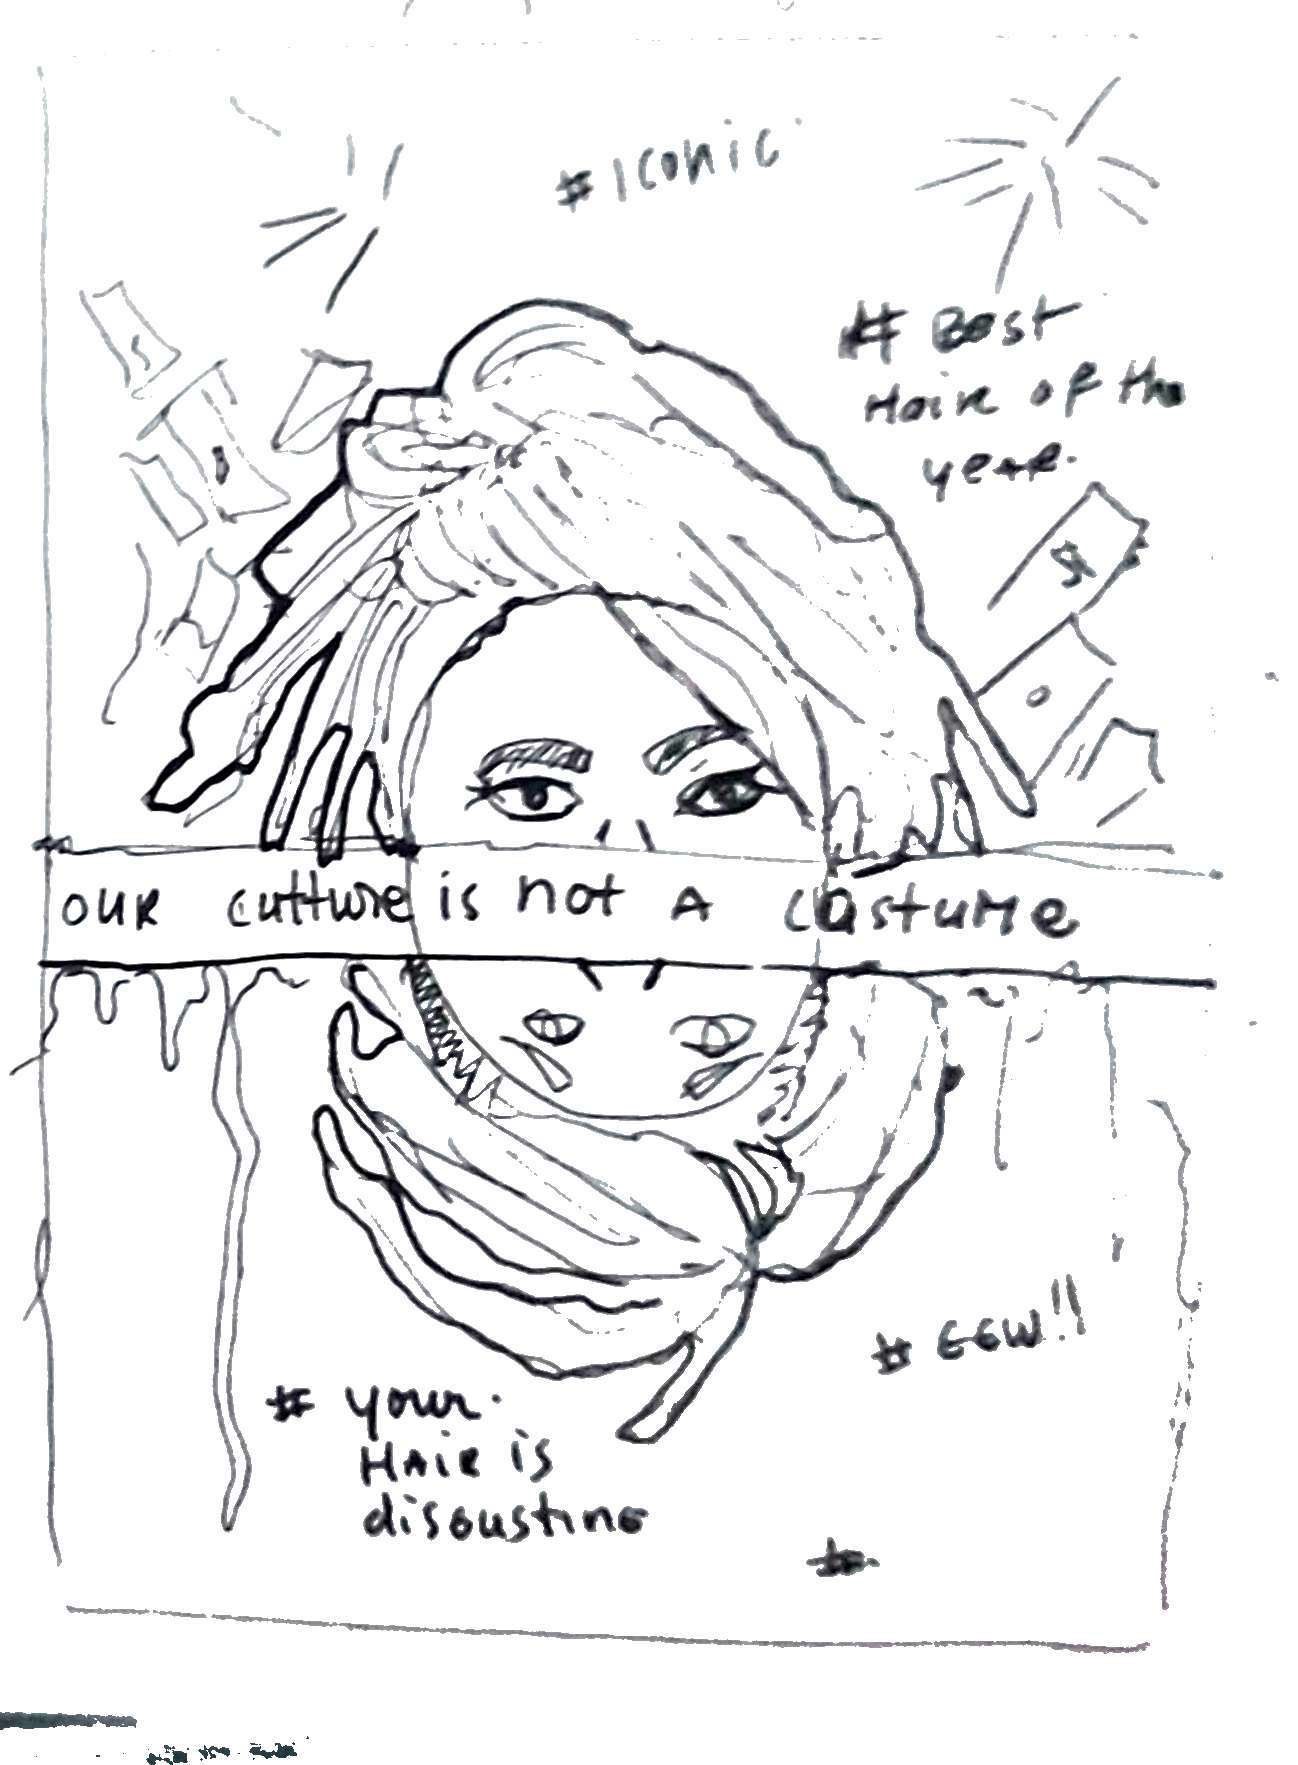 #Iconic
# Best
Hair of the
year.
$
OUR cutture is not A costume
# EEW!!
# your.
HAIR is
disgusting
#